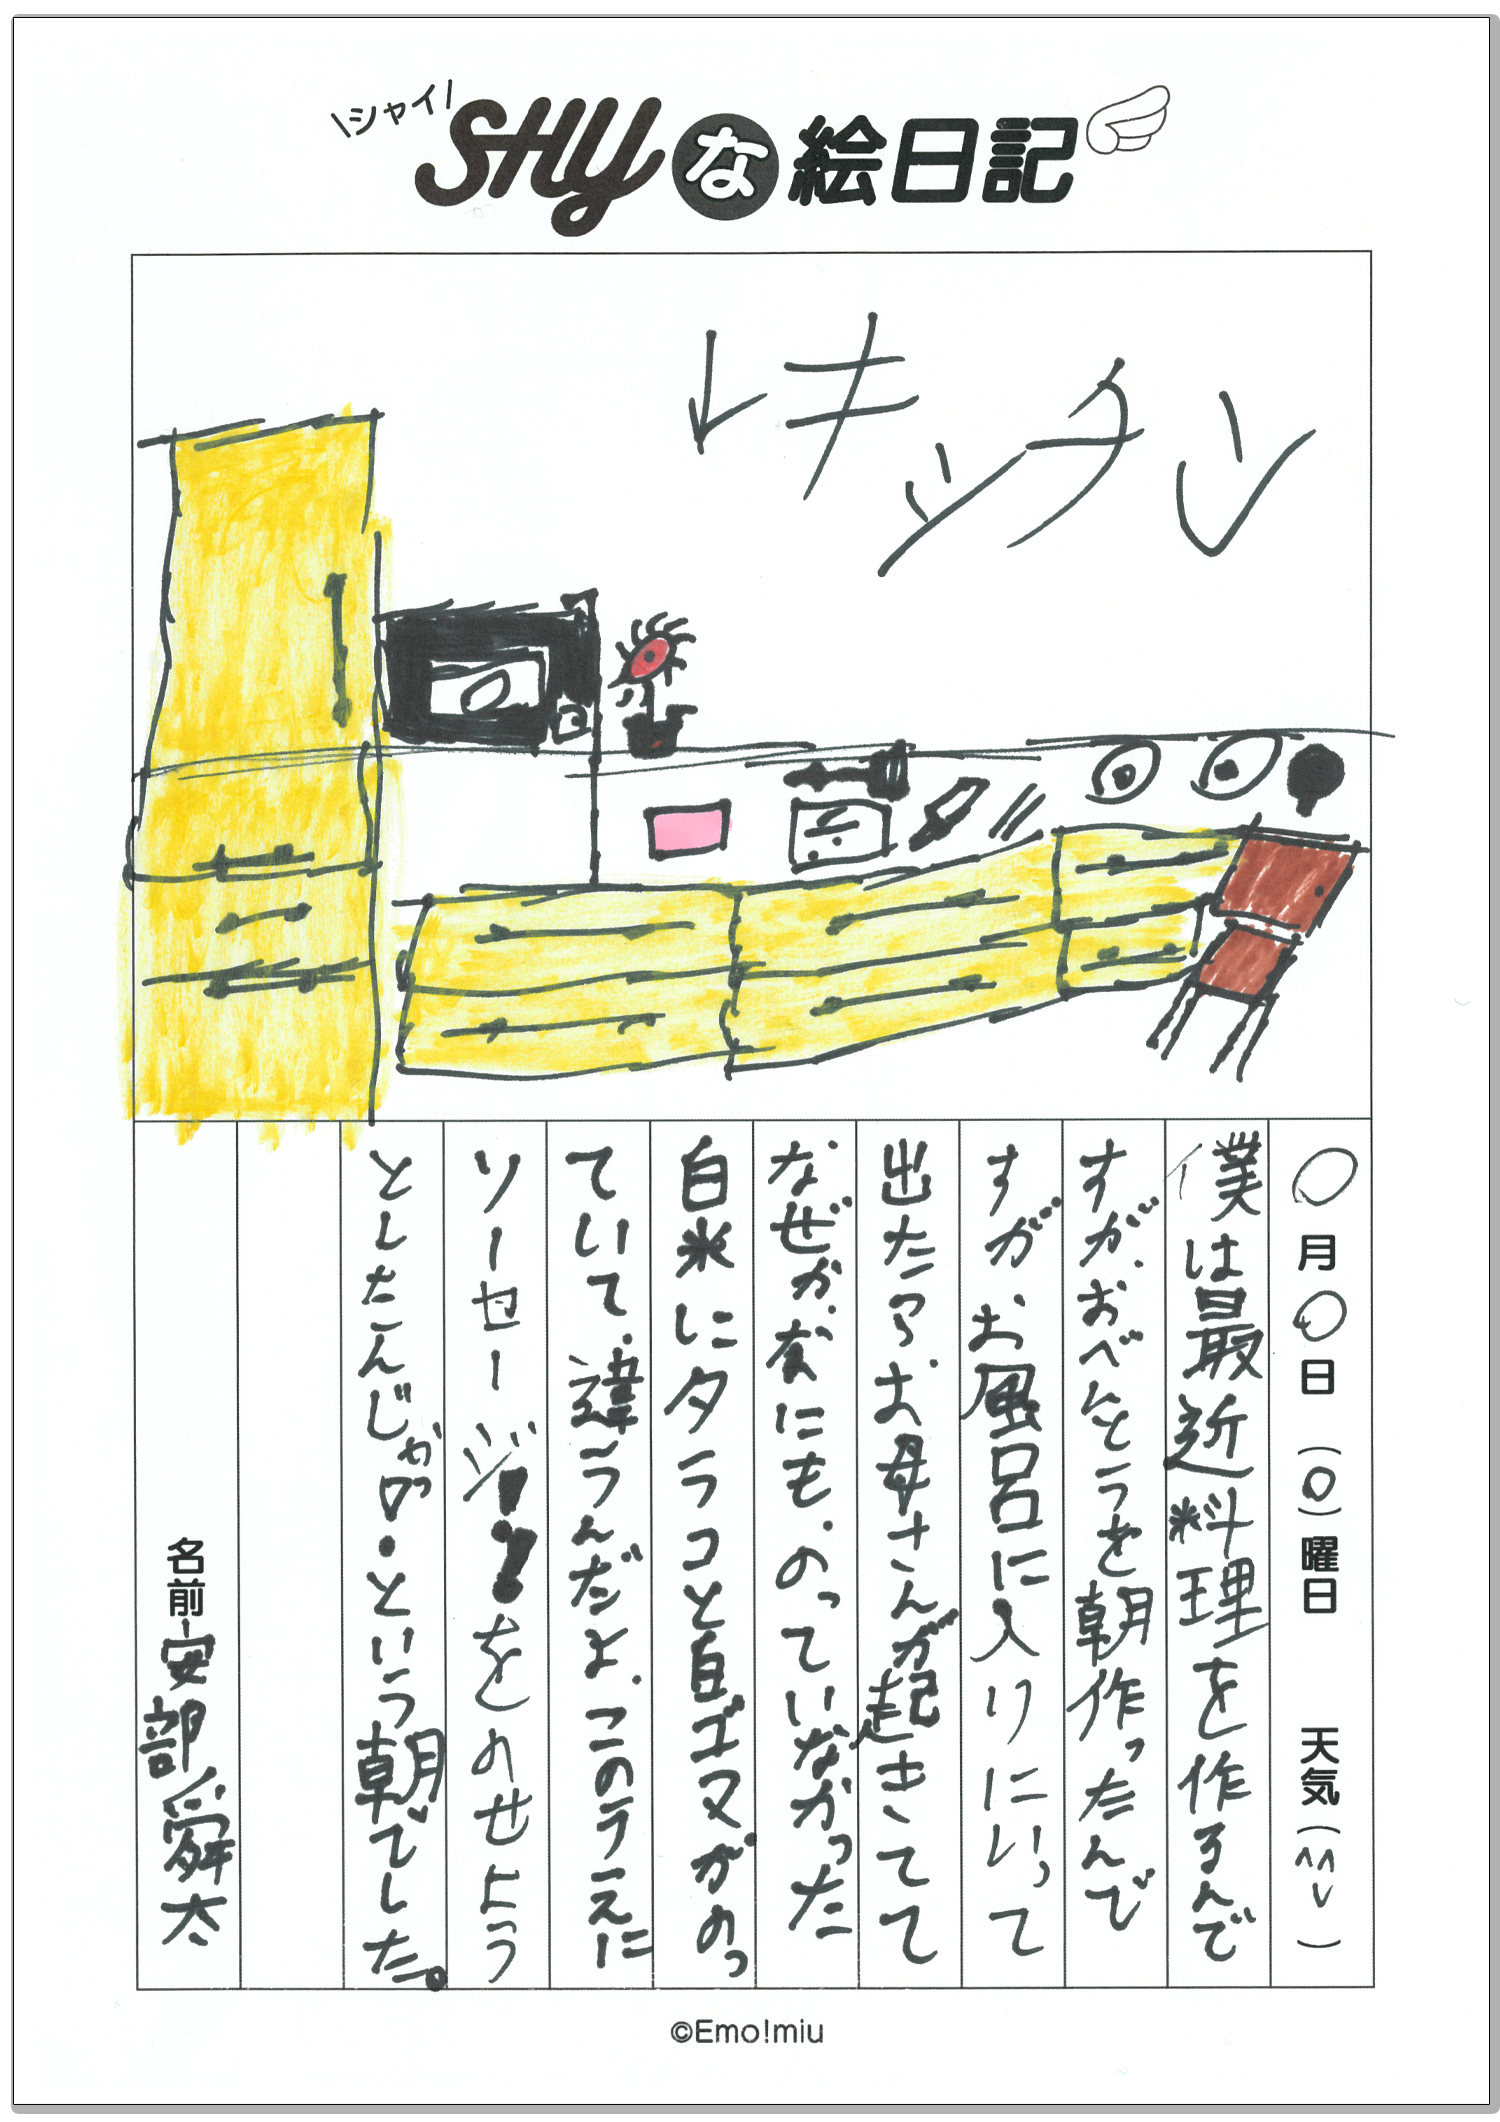 \シャイ/
SHYな絵日記
↓キッチン
〇月〇日（〇）曜日 天気（^^）
僕は最近料理を作るんで
すが、おべんとうを朝作ったんで
すが、お風呂に入りにいって
出たらお母さんが起きてて
なぜか、なにも、のっていなかった
白米にタラコと白ゴマがのっ
ていて、違うんだよ、このうえに
ソーセージをのせよう
としたんじゃ・という朝でした。
名前 安部舜太
©Emo!miu